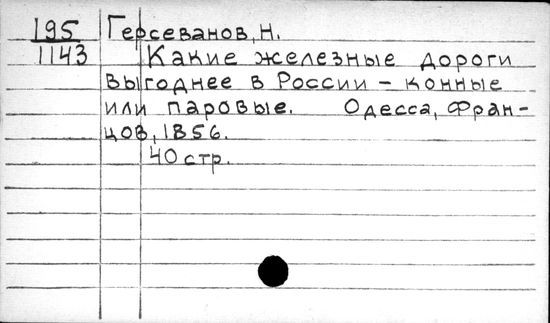 195 Герсеванов, Н.
1143 Какие железные дороги
выгоднее в России - конные
или паровые. Одесса, Фран-
цов, 1856.
40 стр.